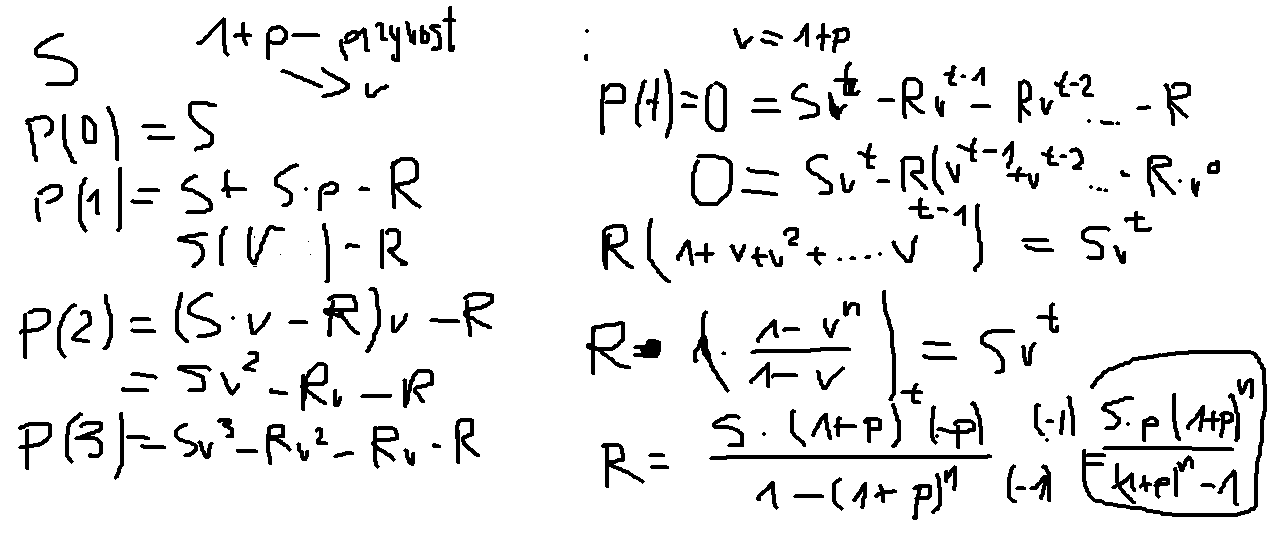 S
1+p – przyrost
v
P(0) = S
P(1) = S + S·p - R
S(V ) - R
P(2) = (S·v - R)v - R
= Sv² - Rv - R
P(3) = Sv³ - Rv² - Rv - R
: v = 1+p
P(t) = 0 = Sv^t - Rv^t-1 - Rv^t-2 ... - R
0 = Sv^t - R(v^t-1 + v^t-2 ... - R·v⁰
R(1 + v + v² + .... v^t-1) = Sv^t
R · (1 · (1 - v^n)/(1 - v)) = Sv^t
R = (S · (1+p)^t (-p))/(1 - (1+p)^n) (-1)/(-1) = (S·p(1+p)^n)/((1+p)^n - 1)